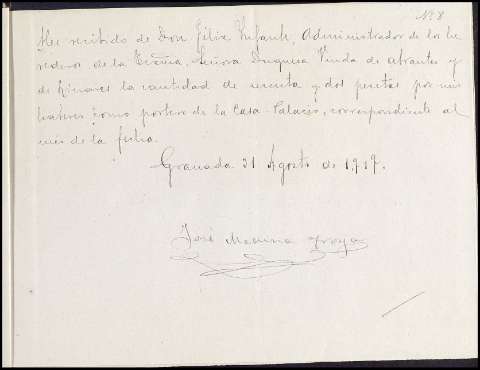 Nº 8
He recibido de Don Félix Infante, Administrador de los he
rederos de la Excma, Señora Duquesa Viuda de Abrantes y
de Linares la cantidad de y dos pesetas por mis
haberes como portero de la Casa-Palacio, correspondiente al
mes de la fecha.
Granada 31 Agosto de 1,917.
José Medina